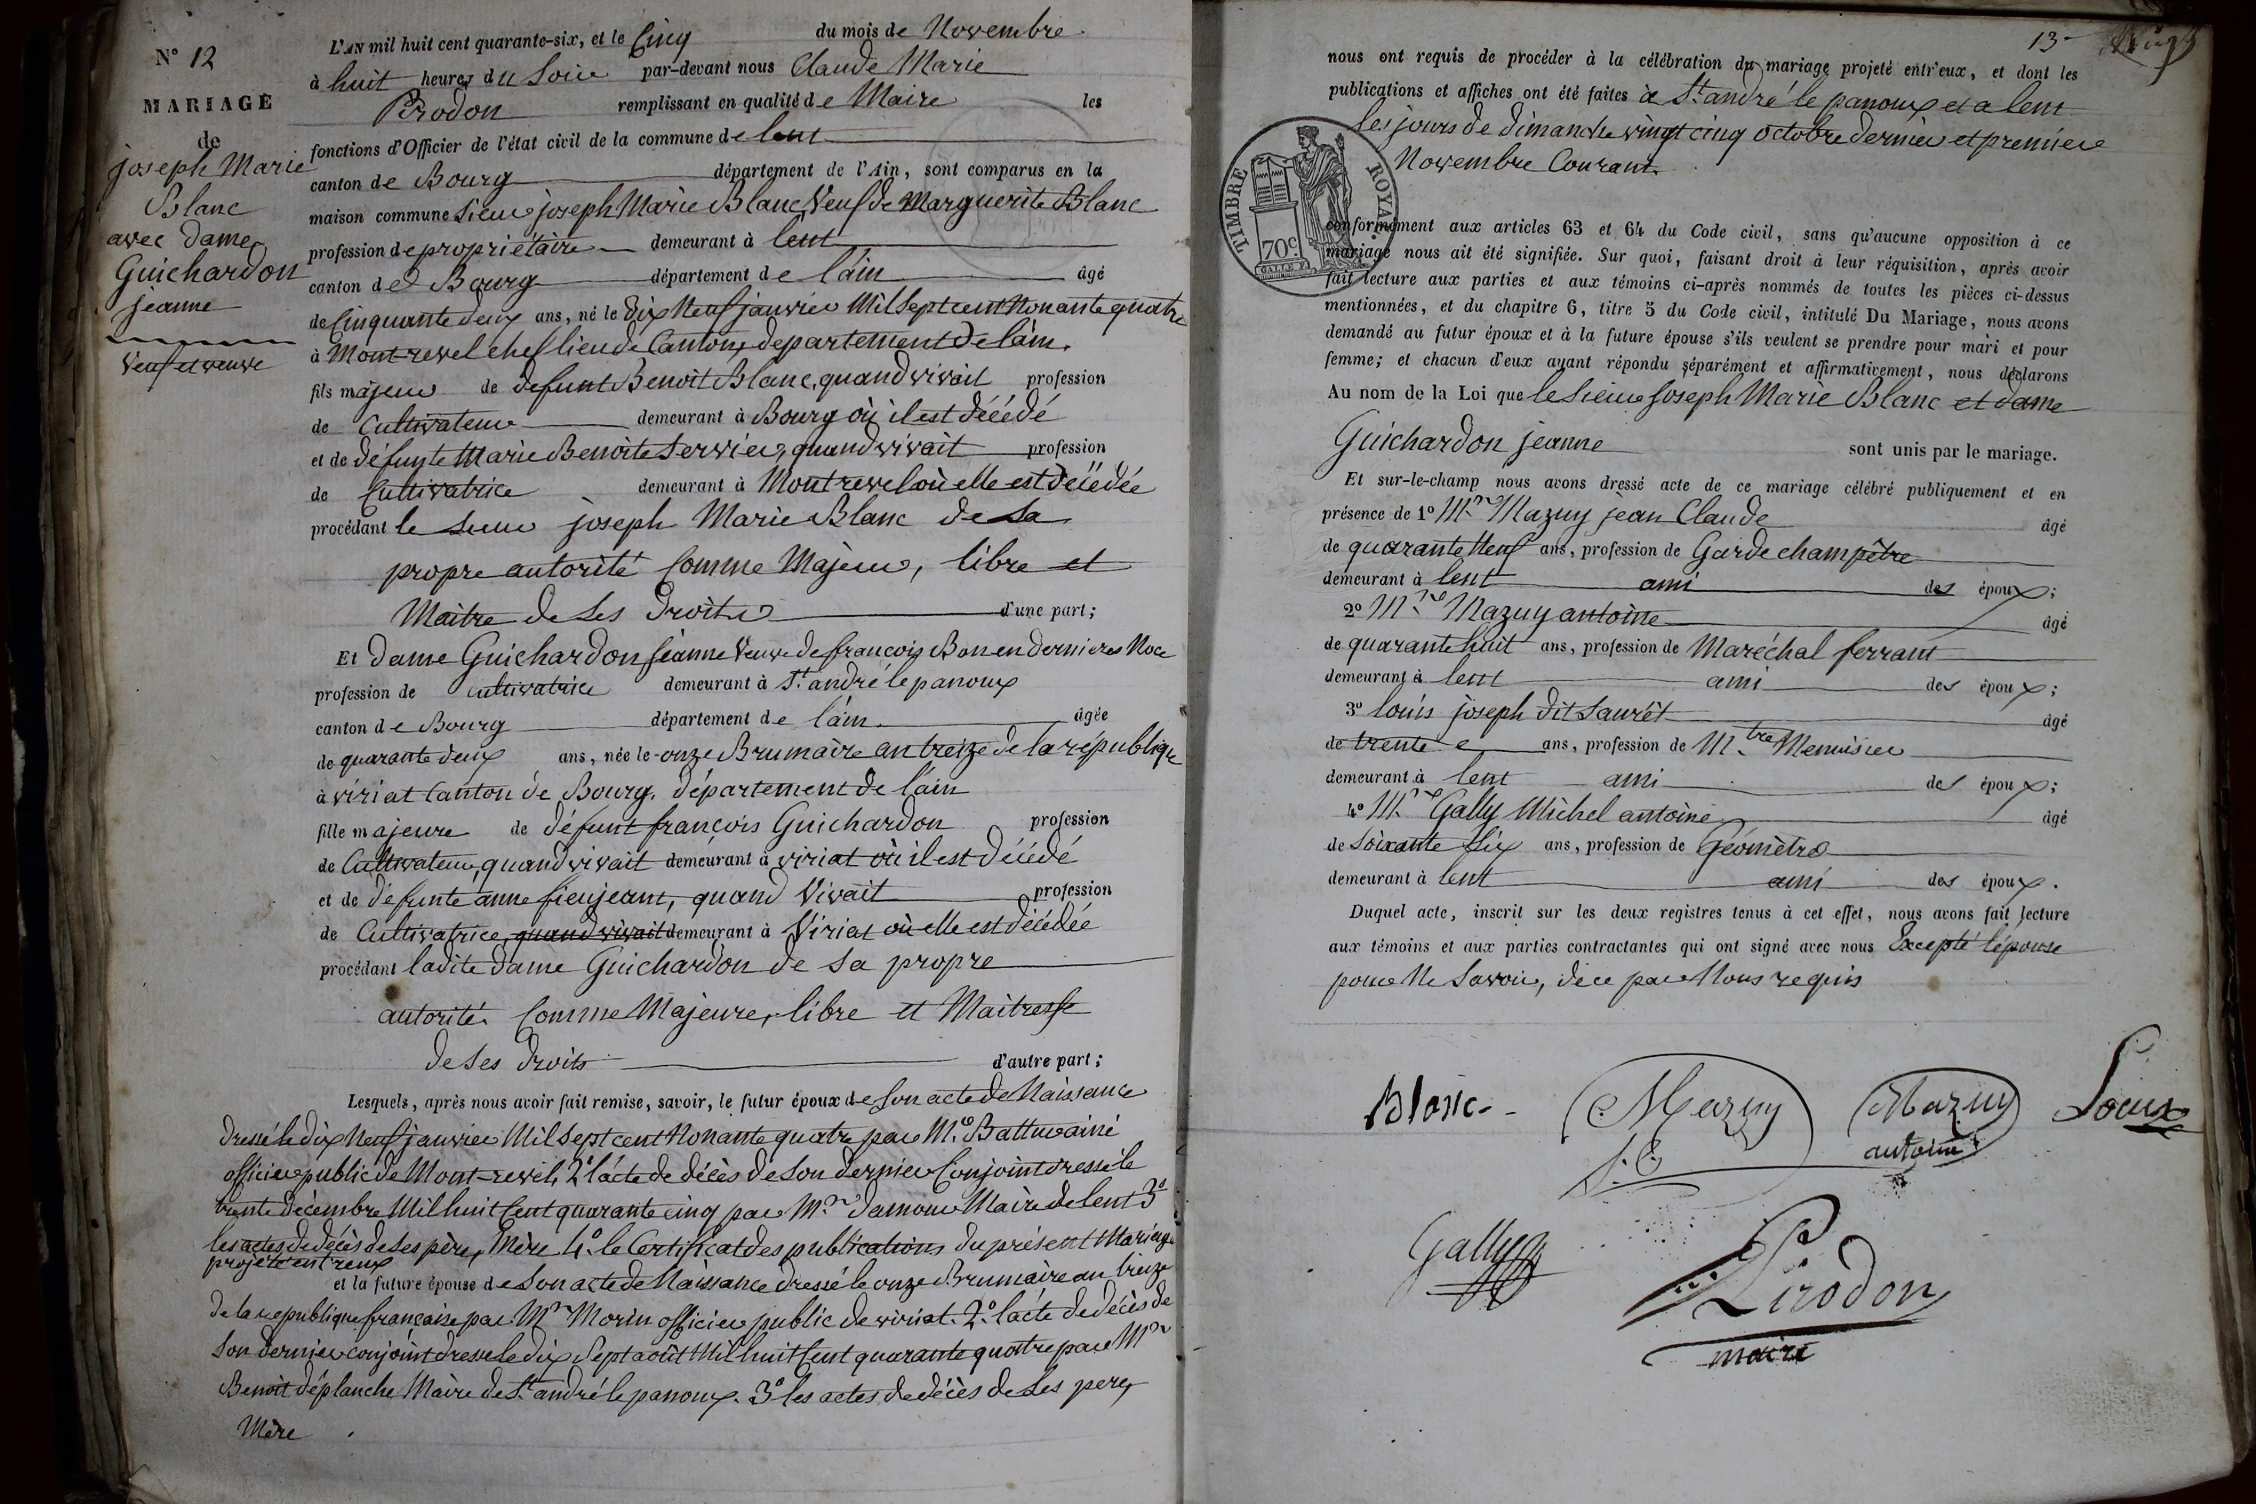 N° 12
MARIAGE
de
joseph Marie
Blanc
avec dame
Guichardon
jeanne
Veuf et veuve
L'AN mil huit cent quarante-six, et le Cinq du mois de Novembre
à huit heures du Soir par-devant nous Claude Marie
Pirodon remplissant en qualité de Maire les
fonctions d'Officier de l'état civil de la commune de lent
canton de Bourg département de l'Ain, sont comparus en la
maison commune Sieur joseph Marie Blanc Veuf de Marguerite Blanc
profession de propriétaire demeurant à lent
canton de Bourg département de l'áin âgé
de Cinquante deux ans, né le Dix Neuf janvier Mil Sept cent Nonante quatre
à Mont-revel chef lieu de Canton, département de l'áin.
fils majeur de defunt Benoit Blanc, quand vivait profession
de Cultivateur demeurant à Bourg où il est décédé
et de défunte Marie Benoite Servier, quand vivait profession
de Cultivatrice demeurant à Montrevel où elle est décédée
procédant le Sieur joseph Marie Blanc de Sa
propre autorité Comme Majeur, libre et
Maitre de Ses Droits d'une part;
Et dame Guichardon jeanne Veuve de francois Bon en dernieres Noce
profession de cultivatrice demeurant à St andré le panoux
canton de Bourg département de l'áin. âgée
de quarante deux ans, née le onze Brumaire an treize de la république
à viriat Canton de Bourg. département de l'áin
fille majeure de défunt françois Guichardon profession
de Cultivateur, quand vivait demeurant à viriat où il est décédé
et de défunte anne fieujean, quand Vivait profession
de Cultivatrice, quand vivait demeurant à Viriat où elle est décédée
procédant ladite dame Guichardon de Sa propre
autorité. Comme Majeure, libre et Maitresse
de Ses droits d'autre part;
Lesquels, après nous avoir fait remise, savoir, le futur époux de Son acte de Naissance
Dressé le dix Neuf janvier Mil Sept cent Nonante quatre par M.
officier public de Mont-revel, 2° l'acte de décès de Son dernier Conjoint dressé le
trente décembre Mil huit Cent quarante cinq par Mr damour Maire de lent 3°
les actes de décès de Ses père, Mère 4° le Certificat des publications du présent Mariage
projété entr'eux
et la future épouse de Son acte de Naissance dressé le onze Brumaire an treize
de la republique française par Mr Morin officier public de viriat. 2° l'acte de décès de
Son dernier conjoint dressé le dix Sept août Mil huit Cent quarante quatre par Mr
Benoit déplanche Maire de St andré le panoux. 3° les actes de décès de Ses pere,
Mère
13
nous ont requis de procéder à la célébration du mariage projeté entr'eux, et dont les
publications et affiches ont été faites à St andré le panoux et a lent
les jours de dimanche vingt cinq octobre dernier et premier
Novembre Courant.
TIMBRE ROYAL
70c.
conformément aux articles 63 et 64 du Code civil, sans qu'aucune opposition à ce
mariage nous ait été signifiée. Sur quoi, faisant droit à leur réquisition, après avoir
fait lecture aux parties et aux témoins ci-après nommés de toutes les pièces ci-dessus
mentionnées, et du chapitre 6, titre 5 du Code civil, intitulé Du Mariage, nous avons
demandé au futur époux et à la future épouse s'ils veulent se prendre pour mari et pour
femme; et chacun d'eux ayant répondu séparément et affirmativement, nous déclarons
Au nom de la Loi que le Sieur Joseph Marie Blanc et dame
Guichardon jeanne sont unis par le mariage.
Et sur-le-champ nous avons dressé acte de ce mariage célébré publiquement et en
présence de 1° Mr Mazuy jean Claude âgé
de quarante Neuf ans, profession de Garde champêtre
demeurant à lent ami des époux;
2° Mr Mazuy antoine âgé
de quarante huit ans, profession de Maréchal ferrant
demeurant à lent ami des époux;
3° louis joseph dit Saurét âgé
de trente ans, profession de M.tre Menuisier
demeurant à lent ami des époux;
4° Mr Gally Michel antoine âgé
de Soixante Six ans, profession de Géomètre
demeurant à lent ami des époux.
Duquel acte, inscrit sur les deux registres tenus à cet effet, nous avons fait lecture
aux témoins et aux parties contractantes qui ont signé avec nous Excepté l'épouse
pour Ne Savoir, de ce par Nous requis
Blanc Mazuy Mazuy Louis
J. C. antoine
Gally
Pirodon
maire